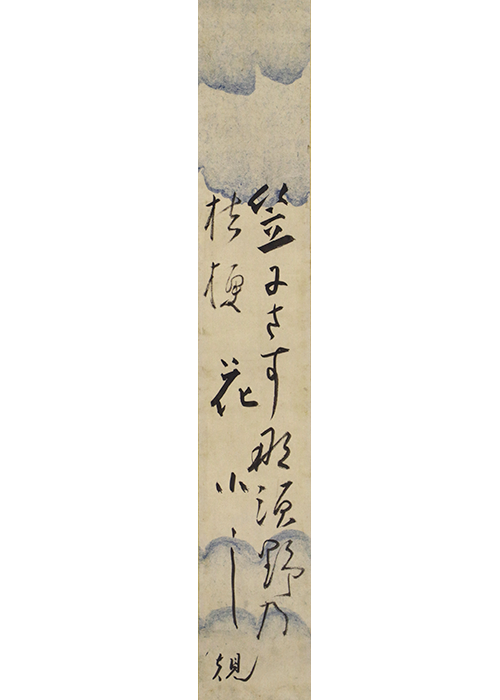 笠にさす那須野乃
桔梗花小し
規